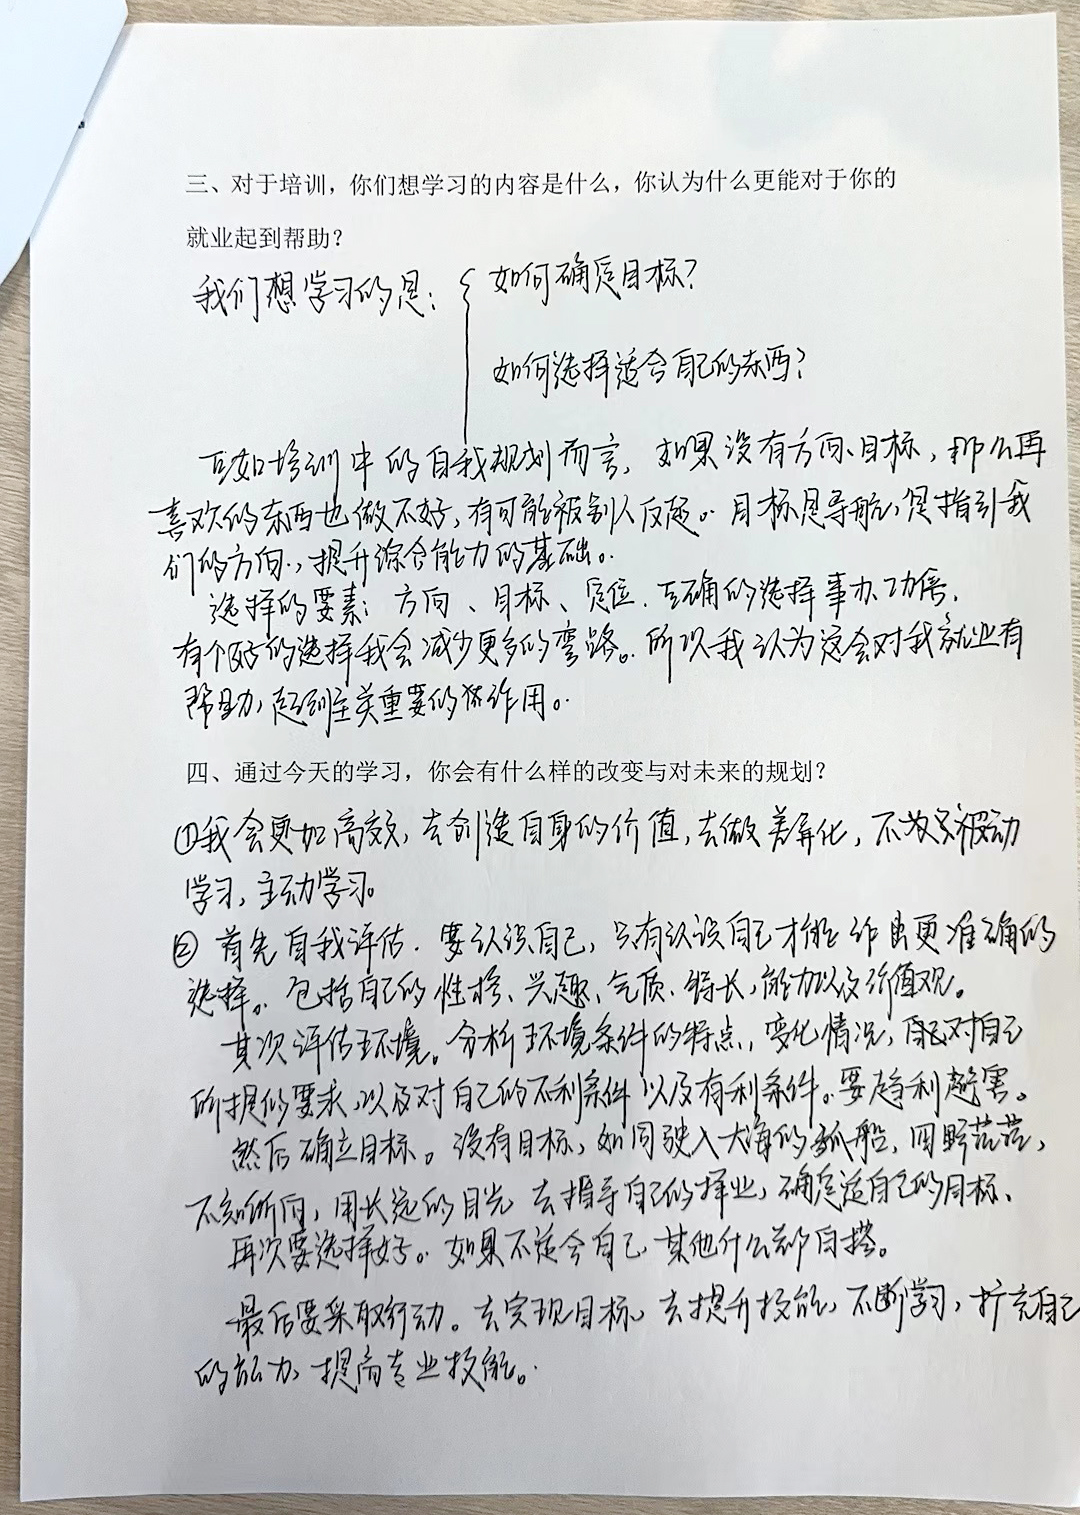 三、对于培训，你们想学习的内容是什么，你认为什么更能对于你的
就业起到帮助？
我们想学习的是：
如何确定目标？
如何选择适合自己的东西？
正如培训中的自我规划而言，如果没有方向、目标，那么再
喜欢的东西也做不好，有可能被别人反超。目标是导航，是指引我
们的方向，提升综合能力的基础。
选择的要素：方向、目标、定位．正确的选择事办功倍，
有个好的选择我会减少更多的弯路。所以我认为这会对我就业有
帮助，起到至关重要的作用。
四、通过今天的学习，你会有什么样的改变与对未来的规划？
①我会更加高效，去创造自身的价值，去做差异化，不被动
学习，主动学习。
② 首先自我评估．要认识自己，只有认识自己才能作出更准确的
选择。包括自己的性格、兴趣、气质、特长，能力以及价值观。
其次评估环境。分析环境条件的特点，变化情况，自己对自己
所提的要求，以及对自己的不利条件以及有利条件。要趋利避害。
然后确立目标。没有目标，如同驶入大海的孤船，四野茫茫，
不知所向，用长远的目光去指导自己的择业，确定适自己的目标、
再次要选择好。如果不适合自己其他什么都白搭。
最后要采取行动。去实现目标，去提升技能，不断学习，扩充自己
的能力，提高专业技能。